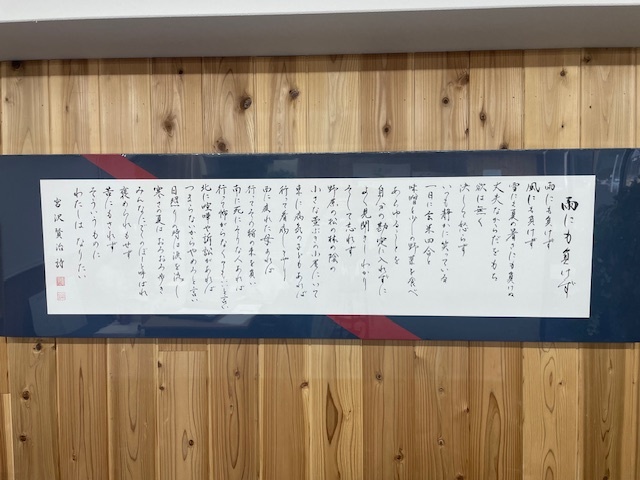 雨にも負けず
雨にも負けず
風にも負けず
雪にも夏の暑さにも負けぬ
丈夫なからだをもち
欲は無く
決して怒らず
いつも静かに笑っている
一日に玄米四合と
味噌と少しの野菜を食べ
あらゆることを
自分を勘定に入れずに
よく見聞きしわかり
そして忘れず
野原の松の林の陰の
小さな萱ぶきの小屋にいて
東に病気の子どもあれば
行って看病してやり
西に疲れた母あれば
行ってその稲の束を負い
南に死にそうな人あれば
行って怖がらなくてもいいと言い
北に喧嘩や訴訟があれば
つまらないからやめろと言い
日照りの時は涙を流し
寒さの夏はおろおろ歩き
みんなにでくのぼうと呼ばれ
褒められもせず
苦にもされず
そういうものに
わたしは なりたい
宮沢賢治 詩